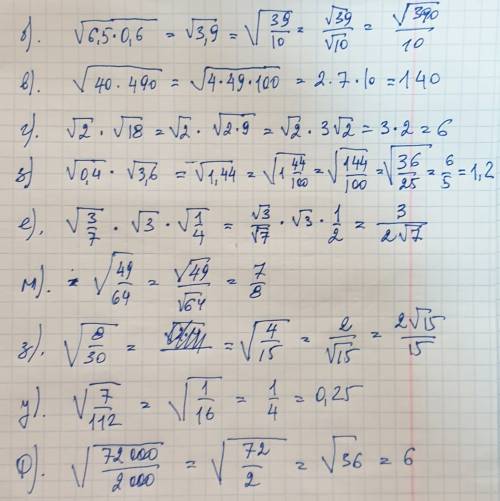 б). √(6,5·0,6) = √3,9 = √(39/10) = √39/√10 = √390/10
в). √(40·490) = √(4·49·100) = 2·7·10 = 140
г). √2 · √18 = √2 · √(2·9) = √2 · 3√2 = 3·2 = 6
д) √0,4 · √3,6 = √1,44 = √(1 44/100) = √(144/100) = √(36/25) = 6/5 = 1,2
е). √(3/7) · √3 · √(1/4) = √3/√7 · √3 · 1/2 = 3/(2√7)
м). √(49/64) = √49/√64 = 7/8
з). √(8/30) = = √(4/15) = 2/√15 = 2√15/15
у). √(7/112) = √(1/16) = 1/4 = 0,25
ф). √(72000/2000) = √(72/2) = √36 = 6